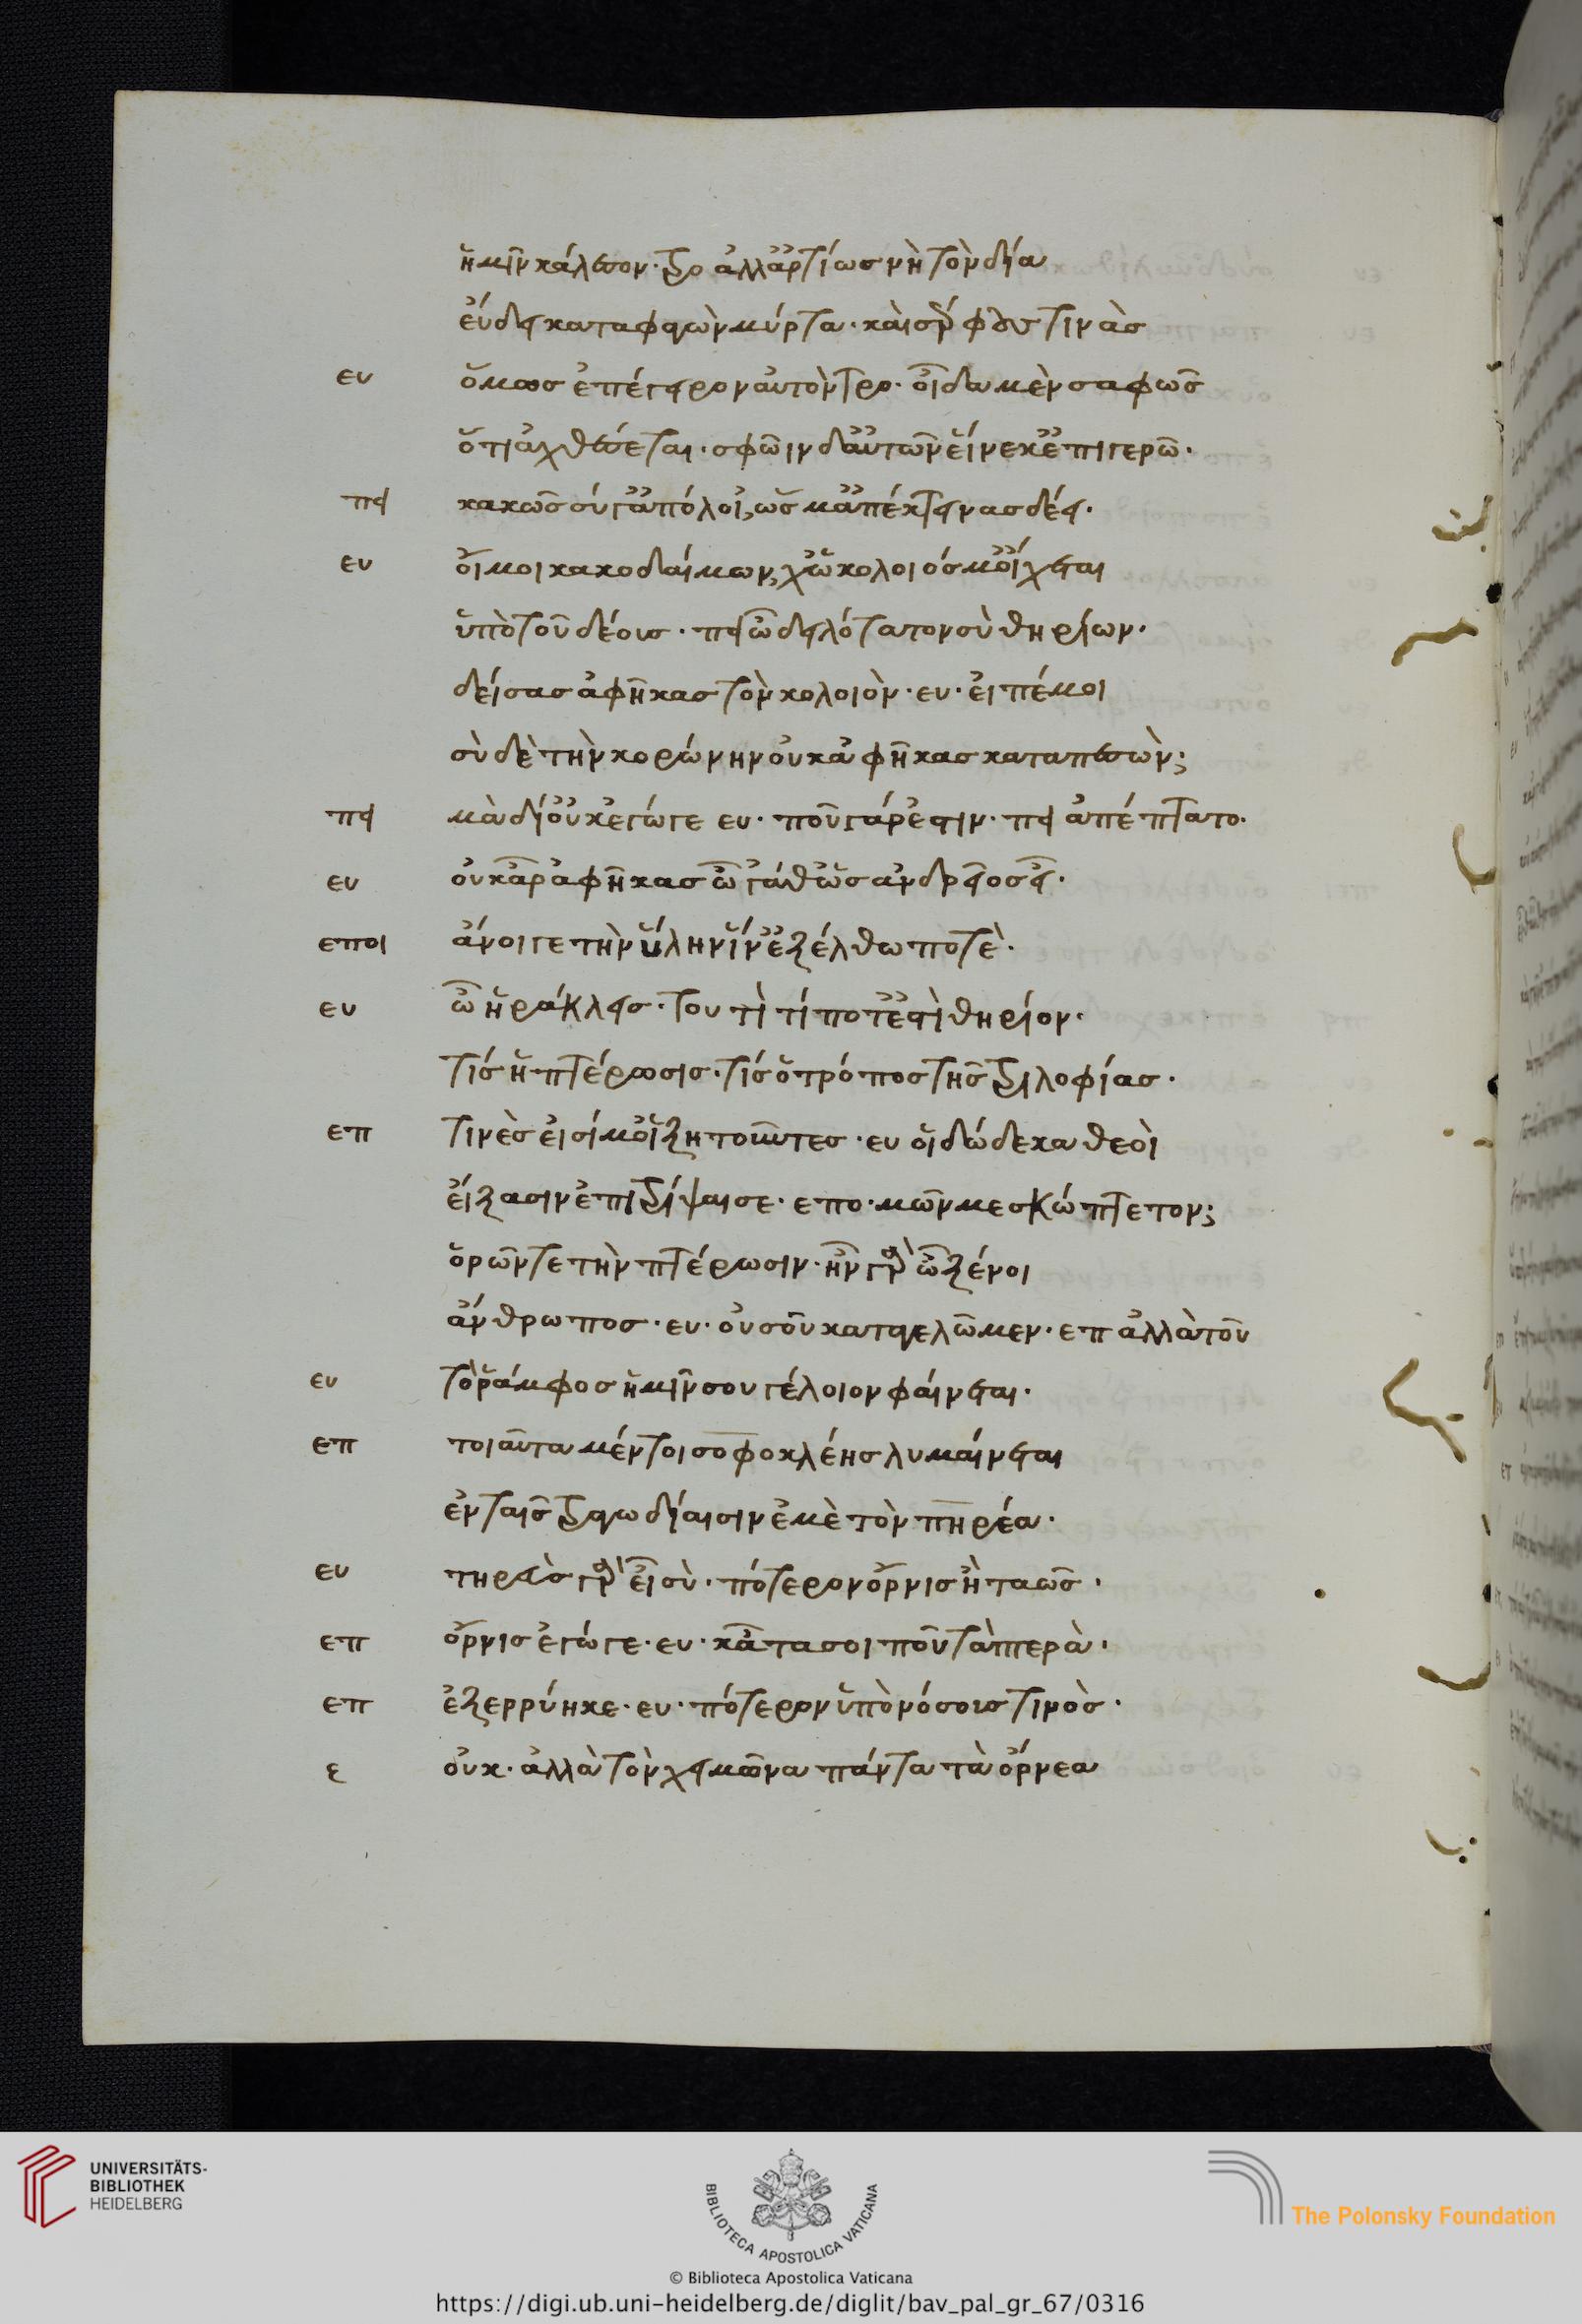 ἡμῖν κάλεσον. τρο ἀλλ' ἀρτίως νὴ τὸν δία
εὕδει καταφαγὼν μύρτα. καὶ σέρφους τινὰς
ευ ὅμως ἐπέγειρον αὐτὸν τρο. οἶδα μὲν σαφῶς
ὅτι ἀχθέσεται. σφῶιν δ' αὐτῶν εἵνεκ' ἐπεγερῶ.
πει κακῶς σύ γ' ἀπόλοι', ὥς μ' ἀπέκτεινας δέει.
ευ οἴμοι κακοδαίμων, χὠ κολοιός μ' οἴχεται
ὑπὸ τοῦ δέους. πει ὦ δειλότατον σὺ θηρίων.
δείσας ἀφῆκας τὸν κολοιὸν. ευ. εἰπέ μοι
σὺ δὲ τὴν κορώνην οὐκ ἀφῆκας καταπεσὼν;
πει μὰ δί' οὐκ ἔγωγε ευ. ποῦ γάρ ἐστιν. πει ἀπέπτατο.
ευ οὐκ ἆρ' ἀφῆκας ὦ 'γάθ' ὡς ἀνδρεῖος εἶ.
εποι ἄνοιγε τὴν ὕλην ἵν' ἐξέλθω ποτὲ.
ευ ὦ ἡράκλεις. τουτὶ τί ποτ' ἐστὶ θηρίον.
τίς ἡ πτέρωσις. τίς ὁ τρόπος τῆς τριλοφίας.
επ τινὲς εἰσί μ' οἱ ζητοῦντες. ευ οἱ δώδεκα θεοὶ
εἴξασιν ἐπιτρίψαι σε. επο. μῶν με σκώπτετον;
ὁρῶντε τὴν πτέρωσιν. ἦν γὰρ ὦ ξένοι
ἄνθρωπος. ευ. οὐ σοῦ καταγελῶμεν. επ ἀλλὰ τοῦ
ευ τὸ ῥάμφος ἡμῖν σου γέλοιον φαίνεται.
επ τοιαῦτα μέντοι σοφοκλέης λυμαίνεται
ἐν ταῖς τραγωδίαισιν ἐμὲ τὸν τηρέα.
ευ τηρεὺς γὰρ εἶ σὺ. πότερον ὄρνις ἢ ταῶς.
επ ὄρνις ἔγωγε. ευ. κᾆτα σοι ποῦ τὰ πτερὰ.
επ ἐξερρύηκε. ευ. πότερον ὑπὸ νόσου τινὸς.
ε οὐκ. ἀλλὰ τὸν χειμῶνα πάντα τὰ ὄρνεα
UNIVERSITÄTS-
BIBLIOTHEK
HEIDELBERG
BIBLIOTECA APOSTOLICA VATICANA
The Polonsky Foundation
© Biblioteca Apostolica Vaticana
https://digi.ub.uni-heidelberg.de/diglit/bav_pal_gr_67/0316